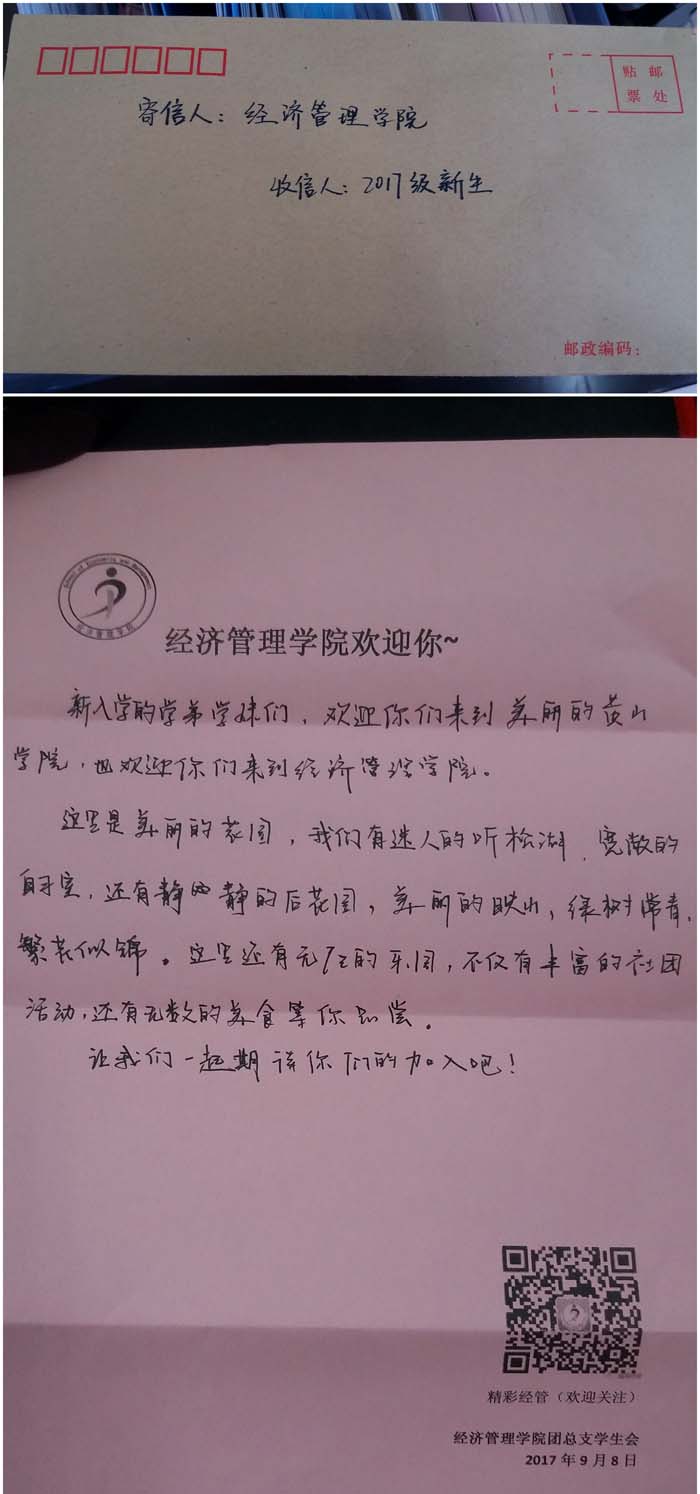 贴 邮
票 处
寄信人：经济管理学院
收信人：2017级新生
邮政编码：
School of Economics and Management
经济管理学院
经济管理学院欢迎你~
新入学的学弟学妹们，欢迎你们来到美丽的黄山
学院，也欢迎你们来到经济管理学院。
这里是美丽的花园，我们有迷人的听松湖、宽敞的
自习室，还有静的后花园，美丽的映山，绿树常青，
繁花似锦。这里还有无 的乐园，不仅有丰富的社团
活动，还有无数的美食等你品尝。
让我们一起期待你们的加入吧！
精彩经管（欢迎关注）
经济管理学院团总支学生会
2017年9月8日